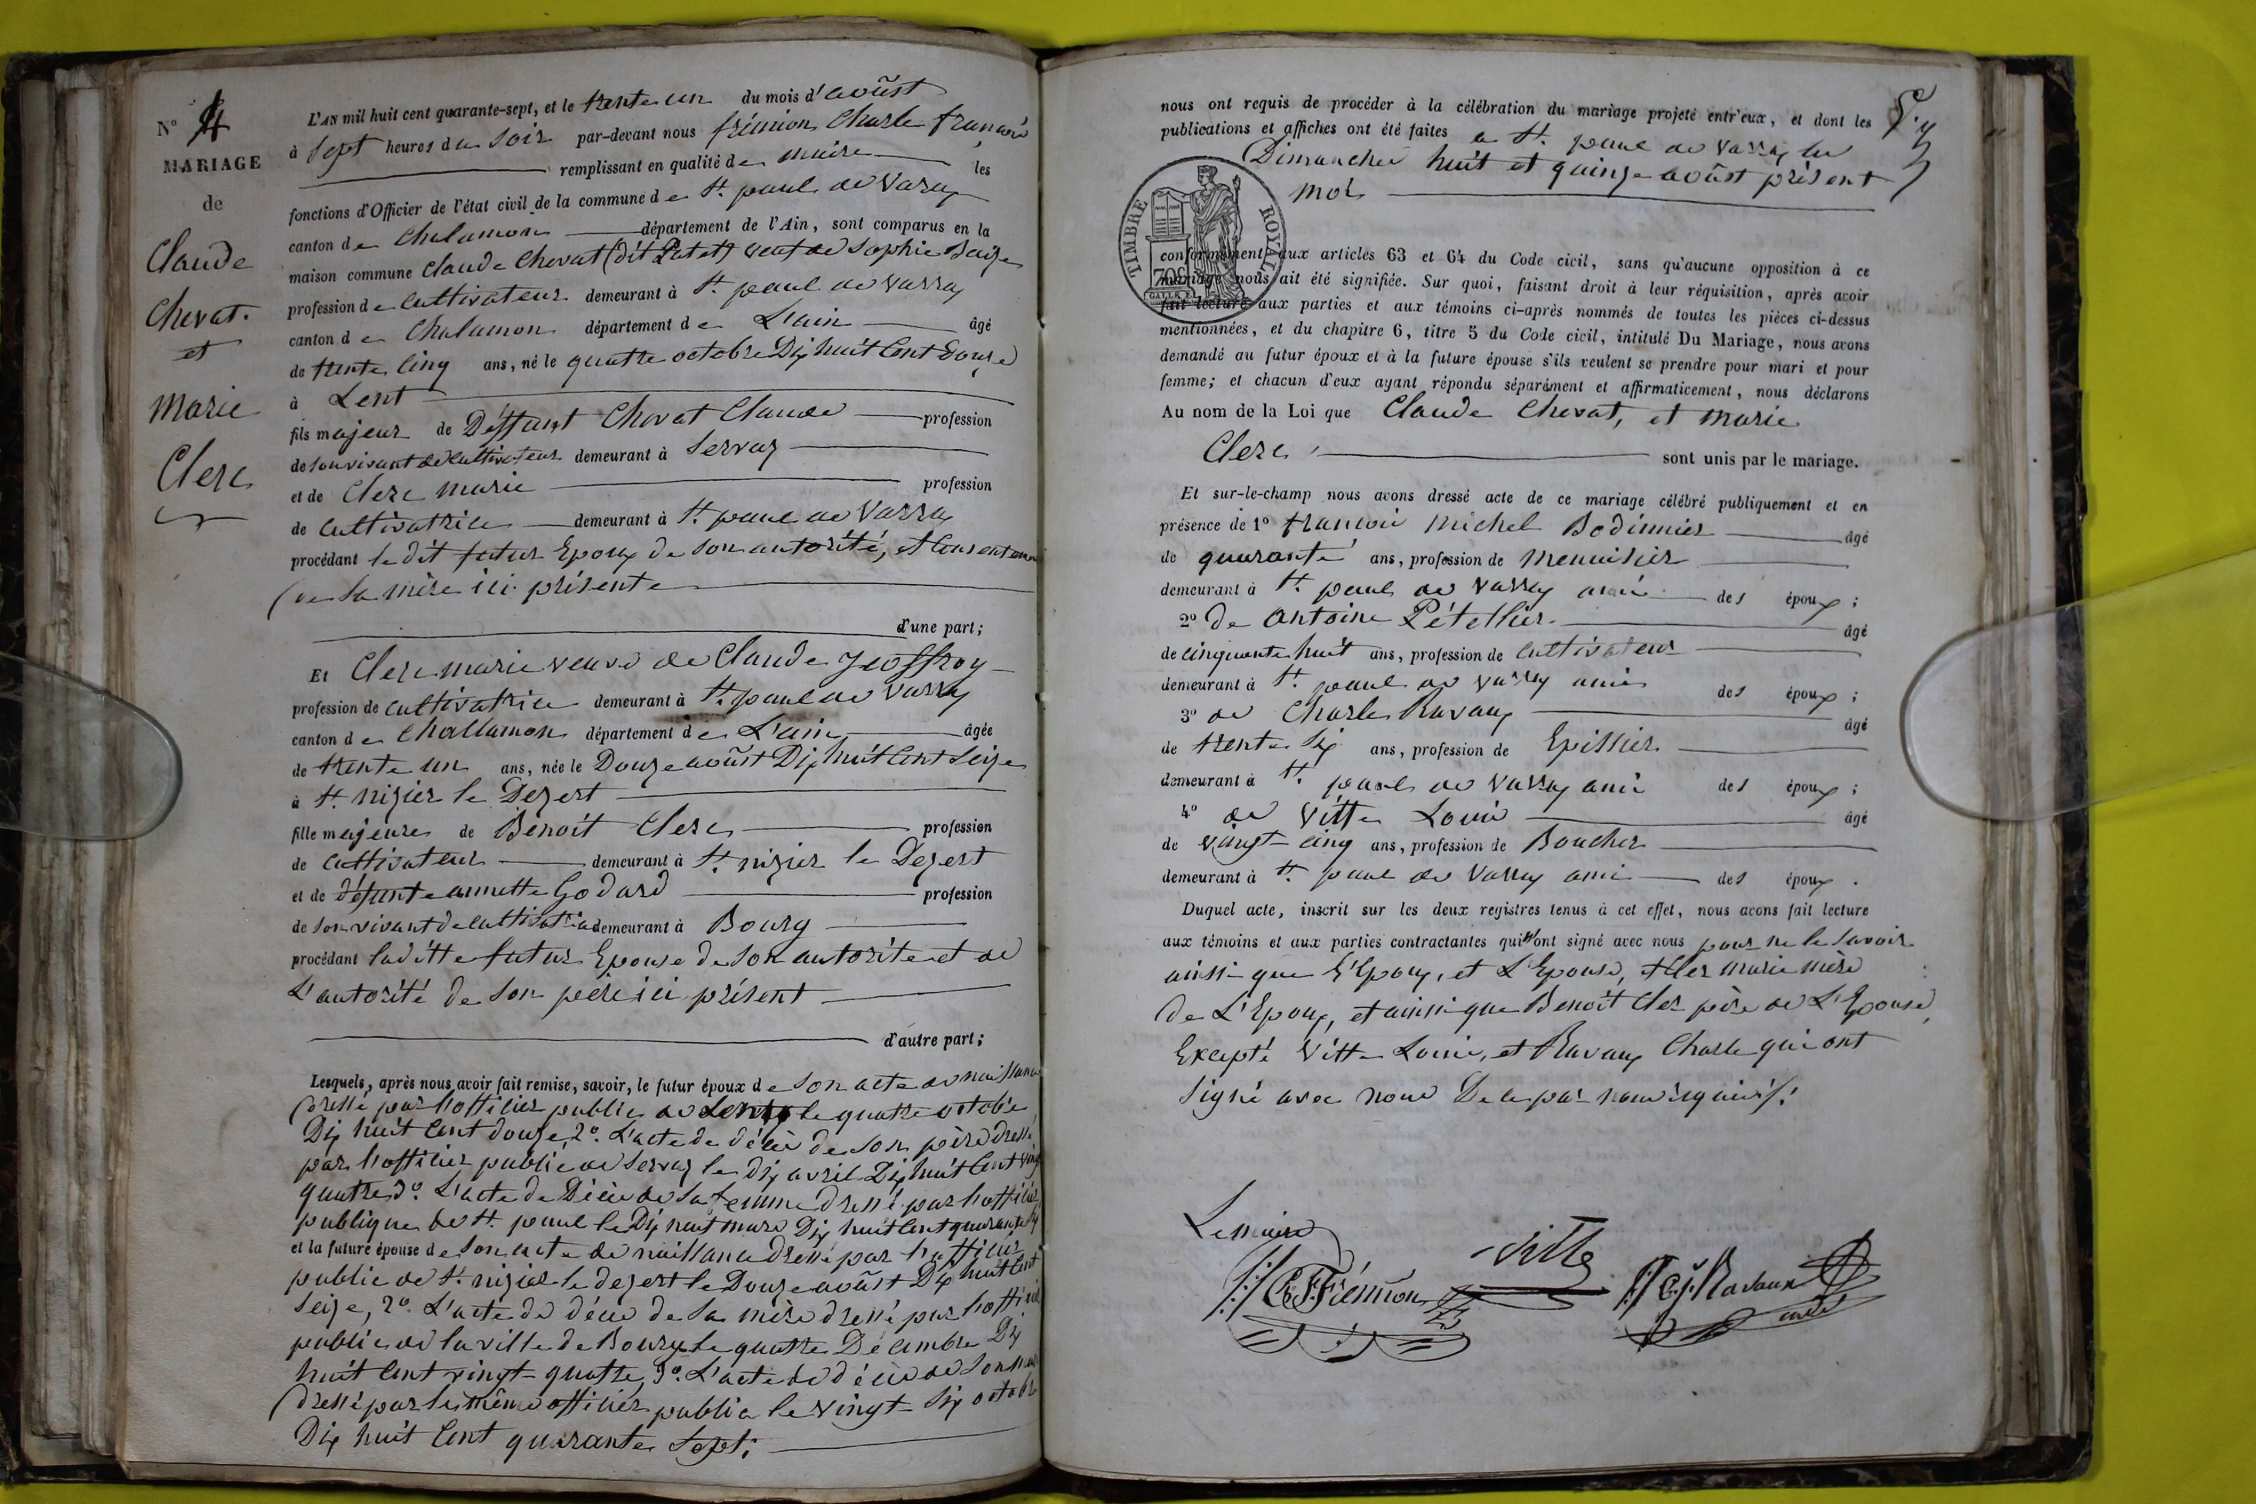 N° 4
MARIAGE
de
Claude
Chevat.
et
Marie
Clerc
L'AN mil huit cent quarante-sept, et le trente un du mois d'août
à Sept heures du Soir par-devant nous frémion Charle françois
remplissant en qualité de maire les
fonctions d'Officier de l'état civil de la commune de St. paul de Varax
canton de Chalamon département de l'Ain, sont comparus en la
maison commune Claude Chevat (dit Patet) veuf de Sophie
profession de Cultivateur demeurant à St. paul de Varax
canton de Chalamon département de L'ain âgé
de trente Cinq ans, né le quatre octobre Dix huit Cent Douze
à Lent
fils majeur de Déffunt Chevat Claude profession
de son vivant de Cultivateur demeurant à Servas
et de Clerc marie profession
de Cultivatrice demeurant à St. paul de Varax
procédant le dit futur Epoux de son autorité, et Consentement
de Sa mère ici présente
d'une part;
Et Clerc marie veuve de Claude Jeoffroy
profession de Cultivatrice demeurant à St. paul de Varax
canton de Challamon département de L'ain âgée
de trente un ans, née le Douze août Dix huit Cent Seize
à St. nizier le Dezert
fille majeure de Benoît Clerc profession
de Cultivateur demeurant à St. nizier le Dezert
et de défunte annette Godard profession
de Son vivant de Cultivatrice demeurant à Bourg
procédant laditte futur Epouse de Son autorité et de
L'autorité de Son père ici présent
d'autre part;
Lesquels, après nous avoir fait remise, savoir, le futur époux de Son acte de naissance
dressé par l'officier public de Lent le quatre octobre
Dix huit Cent douze, 2°. L'acte de décè de Son père dressé
par l'officier public de Servas le dix avril Dix huit Cent vingt
quatre 3°. L'acte de Décè de Sa femme dressé par l'officier
publique de St. paul le Dix huit mars Dix huit Cent quarante Six
et la future épouse de Son acte de naissance dressé par l'officier
public de St. nizier le dezert le Douze août Dix huit Cent
Seize, 2°. L'acte de décè de Sa mère dressé par l'officier
public de la ville de Bourg le quatre Décembre Dix
huit Cent vingt-quatre, 3°. L'acte de décè de Son mari
dressé par le même officier public le vingt-Six octobre
Dix huit Cent quarante Sept;
nous ont requis de procéder à la célébration du mariage projeté entr'eux, et dont les
publications et affiches ont été faites a St. paul de Varax les
Dimanches huit et quinze août présent
moi
TIMBRE ROYAL
70c
conformément aux articles 63 et 64 du Code civil, sans qu'aucune opposition à ce
mariage nous ait été signifiée. Sur quoi, faisant droit à leur réquisition, après avoir
fait lecture aux parties et aux témoins ci-après nommés de toutes les pièces ci-dessus
mentionnées, et du chapitre 6, titre 5 du Code civil, intitulé Du Mariage, nous avons
demandé au futur époux et à la future épouse s'ils veulent se prendre pour mari et pour
femme; et chacun d'eux ayant répondu séparément et affirmativement, nous déclarons
Au nom de la Loi que Claude Chevat, et marie
Clerc sont unis par le mariage.
Et sur-le-champ nous avons dressé acte de ce mariage célébré publiquement et en
présence de 1° françois michel Bodinnier âgé
de quarante ans, profession de Menuisier
demeurant à St. paul de Varax ami des époux;
2° de Antoine Pétellier âgé
de cinquante huit ans, profession de Cultivateur
demeurant à St. paul de Varax ami des époux;
3° de Charle Ravaux âgé
de trente Six ans, profession de Epissier
demeurant à St. paul de Varax ami des époux;
4° de Vitte Louis âgé
de vingt-cinq ans, profession de Boucher
demeurant à St. paul de Varax ami des époux.
Duquel acte, inscrit sur les deux registres tenus à cet effet, nous avons fait lecture
aux témoins et aux parties contractantes qui n'ont signé avec nous pour ne le Savoir
ainsi que L'Epoux, et L'Epouse, et Cler marie mère
de L'Epoux, et ainsi que Benoît Cler père de L'Epouse,
Excepté Vitte Louis, et Ravaux Charle qui ont
Signé avec nous De ce par nous requis;
Le maire
C.F. Frémion Vitte C.J. Ravaux